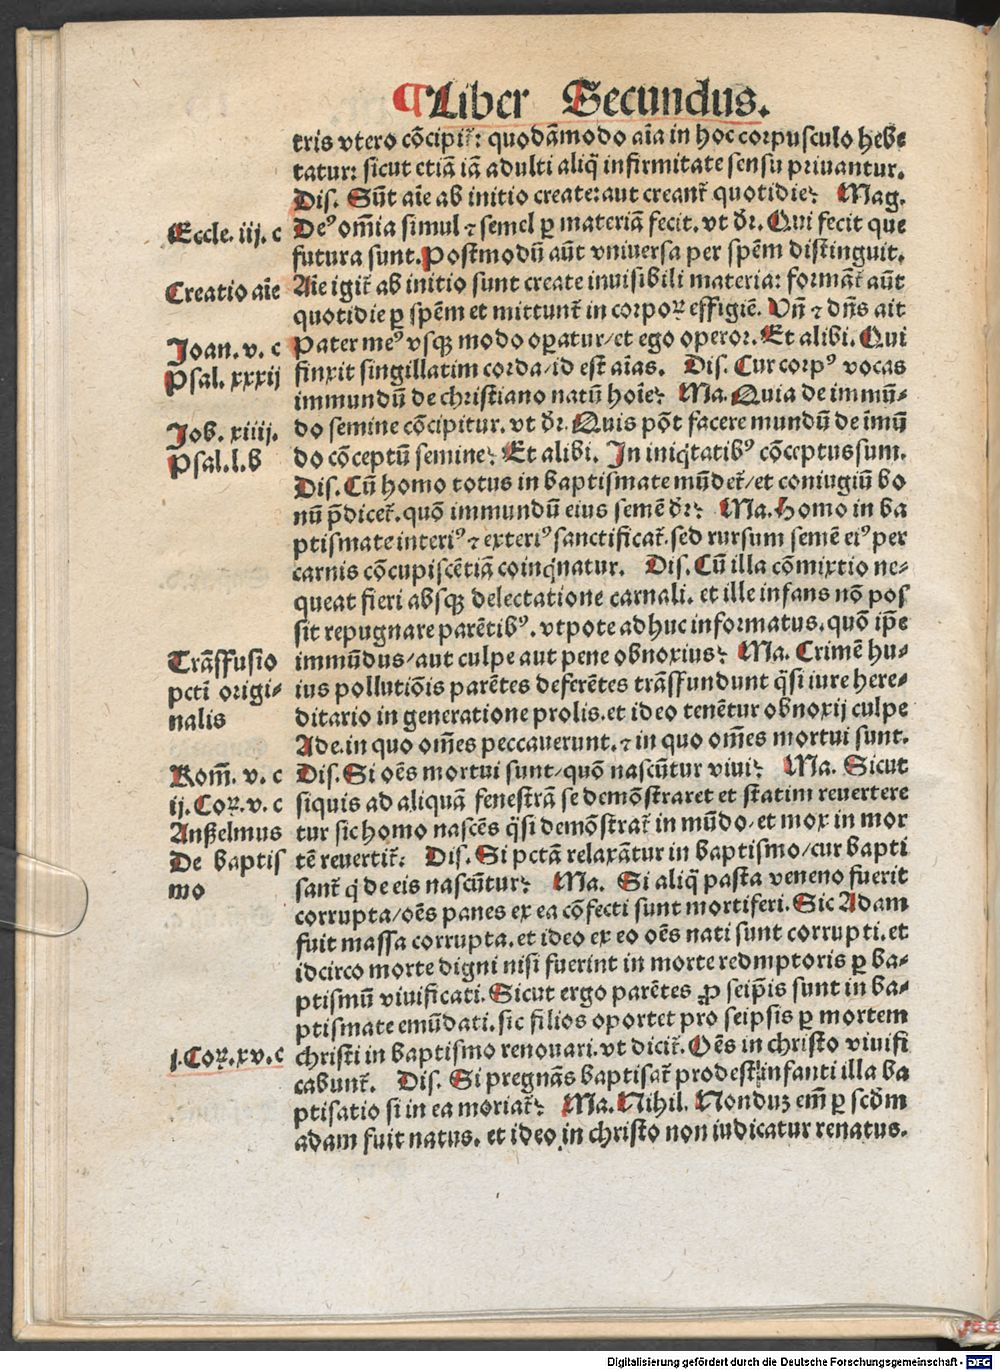 ¶Liber Secundus.
tris vtero cōcipit᷑: quodāmodo aīa in hoc corpusculo hebe
tatur: sicut etiā iā adulti aliq̄ infirmitate sensu priuantur.
Dis. Sūt aīe ab initio create: aut creant᷑ quotidie? Mag.
Eccle. iij. c
Deꝰ om̄ia simul ⁊ semel ꝑ materiā fecit. vt dr̄. Qui fecit que
futura sunt. Postmodū aūt vniuersa per spēm distinguit.
Creatio aīe
Aīe igit᷑ ab initio sunt create inuisibili materia: formāt᷑ aūt
quotidie ꝑ spēm et mittunt᷑ in corpoꝝ effigiē. Vn̄ ⁊ dn̄s ait
Joan. v. c
Pater meꝰ vsqꝫ modo oꝑatur/et ego operor. Et alibi. Qui
Psal. xxxij
finxit singillatim corda/id est aīas. Dis. Cur corpꝰ vocas
immundū de christiano natū hoīe? Ma. Quia de immū-
Job. xiiij.
do semine cōcipitur. vt dr̄. Quis pōt facere mundū de īmū
Psal. l. b
do cōceptū semine? Et alibi. In iniq̇tatibꝰ cōceptus sum.
Dis. Cū homo totus in baptismate mūdet᷑/et coniugiū bo
nū p̄dicet᷑. quō immundū eius semē dr̄? Ma. Homo in ba
ptismate interiꝰ ⁊ exteriꝰ sanctificat᷑. sed rursum semē eiꝰ per
carnis cōcupiscētiā coinq̇natur. Dis. Cū illa cōmixtio ne-
queat fieri absqꝫ delectatione carnali. et ille infans nō pos
sit repugnare parētibꝰ. vtpote adhuc informatus. quō ip̄e
Trāsfusio
immūdus/aut culpe aut pene obnoxius? Ma. Crimē hu-
pctī origi-
ius pollutiōis parētes deferētes trāsfundunt q̄si iure here-
nalis
ditario in generatione prolis. et ideo tenētur obnoxij culpe
Ade. in quo om̄es peccauerunt. ⁊ in quo om̄es mortui sunt.
Rom̄. v. c
Dis. Si oēs mortui sunt/quō nascūtur viui? Ma. Sicut
ij. Coꝝ. v. c
siquis ad aliquā fenestrā se demōstraret et statim reuertere
Anßelmus
tur sic homo nascēs q̄si demōstrat᷑ in mūdo/et mox in mor
De baptis
tē reuertit᷑. Dis. Si pctā relaxātur in baptismo/cur bapti
mo
sant᷑ q̇ de eis nascūtur? Ma. Si aliq̄ pasta veneno fuerit
corrupta/oēs panes ex ea cōfecti sunt mortiferi. Sic Adam
fuit massa corrupta. et ideo ex eo oēs nati sunt corrupti. et
idcirco morte digni nisi fuerint in morte redmptoris ꝑ ba-
ptismū viuificati. Sicut ergo parētes ꝓ seip̄is sunt in ba-
ptismate emūdati. sic filios oportet pro seipsis ꝑ mortem
j. Coꝝ. xv. c
christi in baptismo renouari. vt dicit᷑. Oēs in christo viuifi
cabunt᷑. Dis. Si pregnās baptisat᷑ prodest infanti illa ba
ptisatio si in ea moriat᷑? Ma. Nihil. Nonduꝫ em̄ ꝑ scdm̄
adam fuit natus. et ideo in christo non iudicatur renatus.
Digitalisierung gefördert durch die Deutsche Forschungsgemeinschaft - DFG